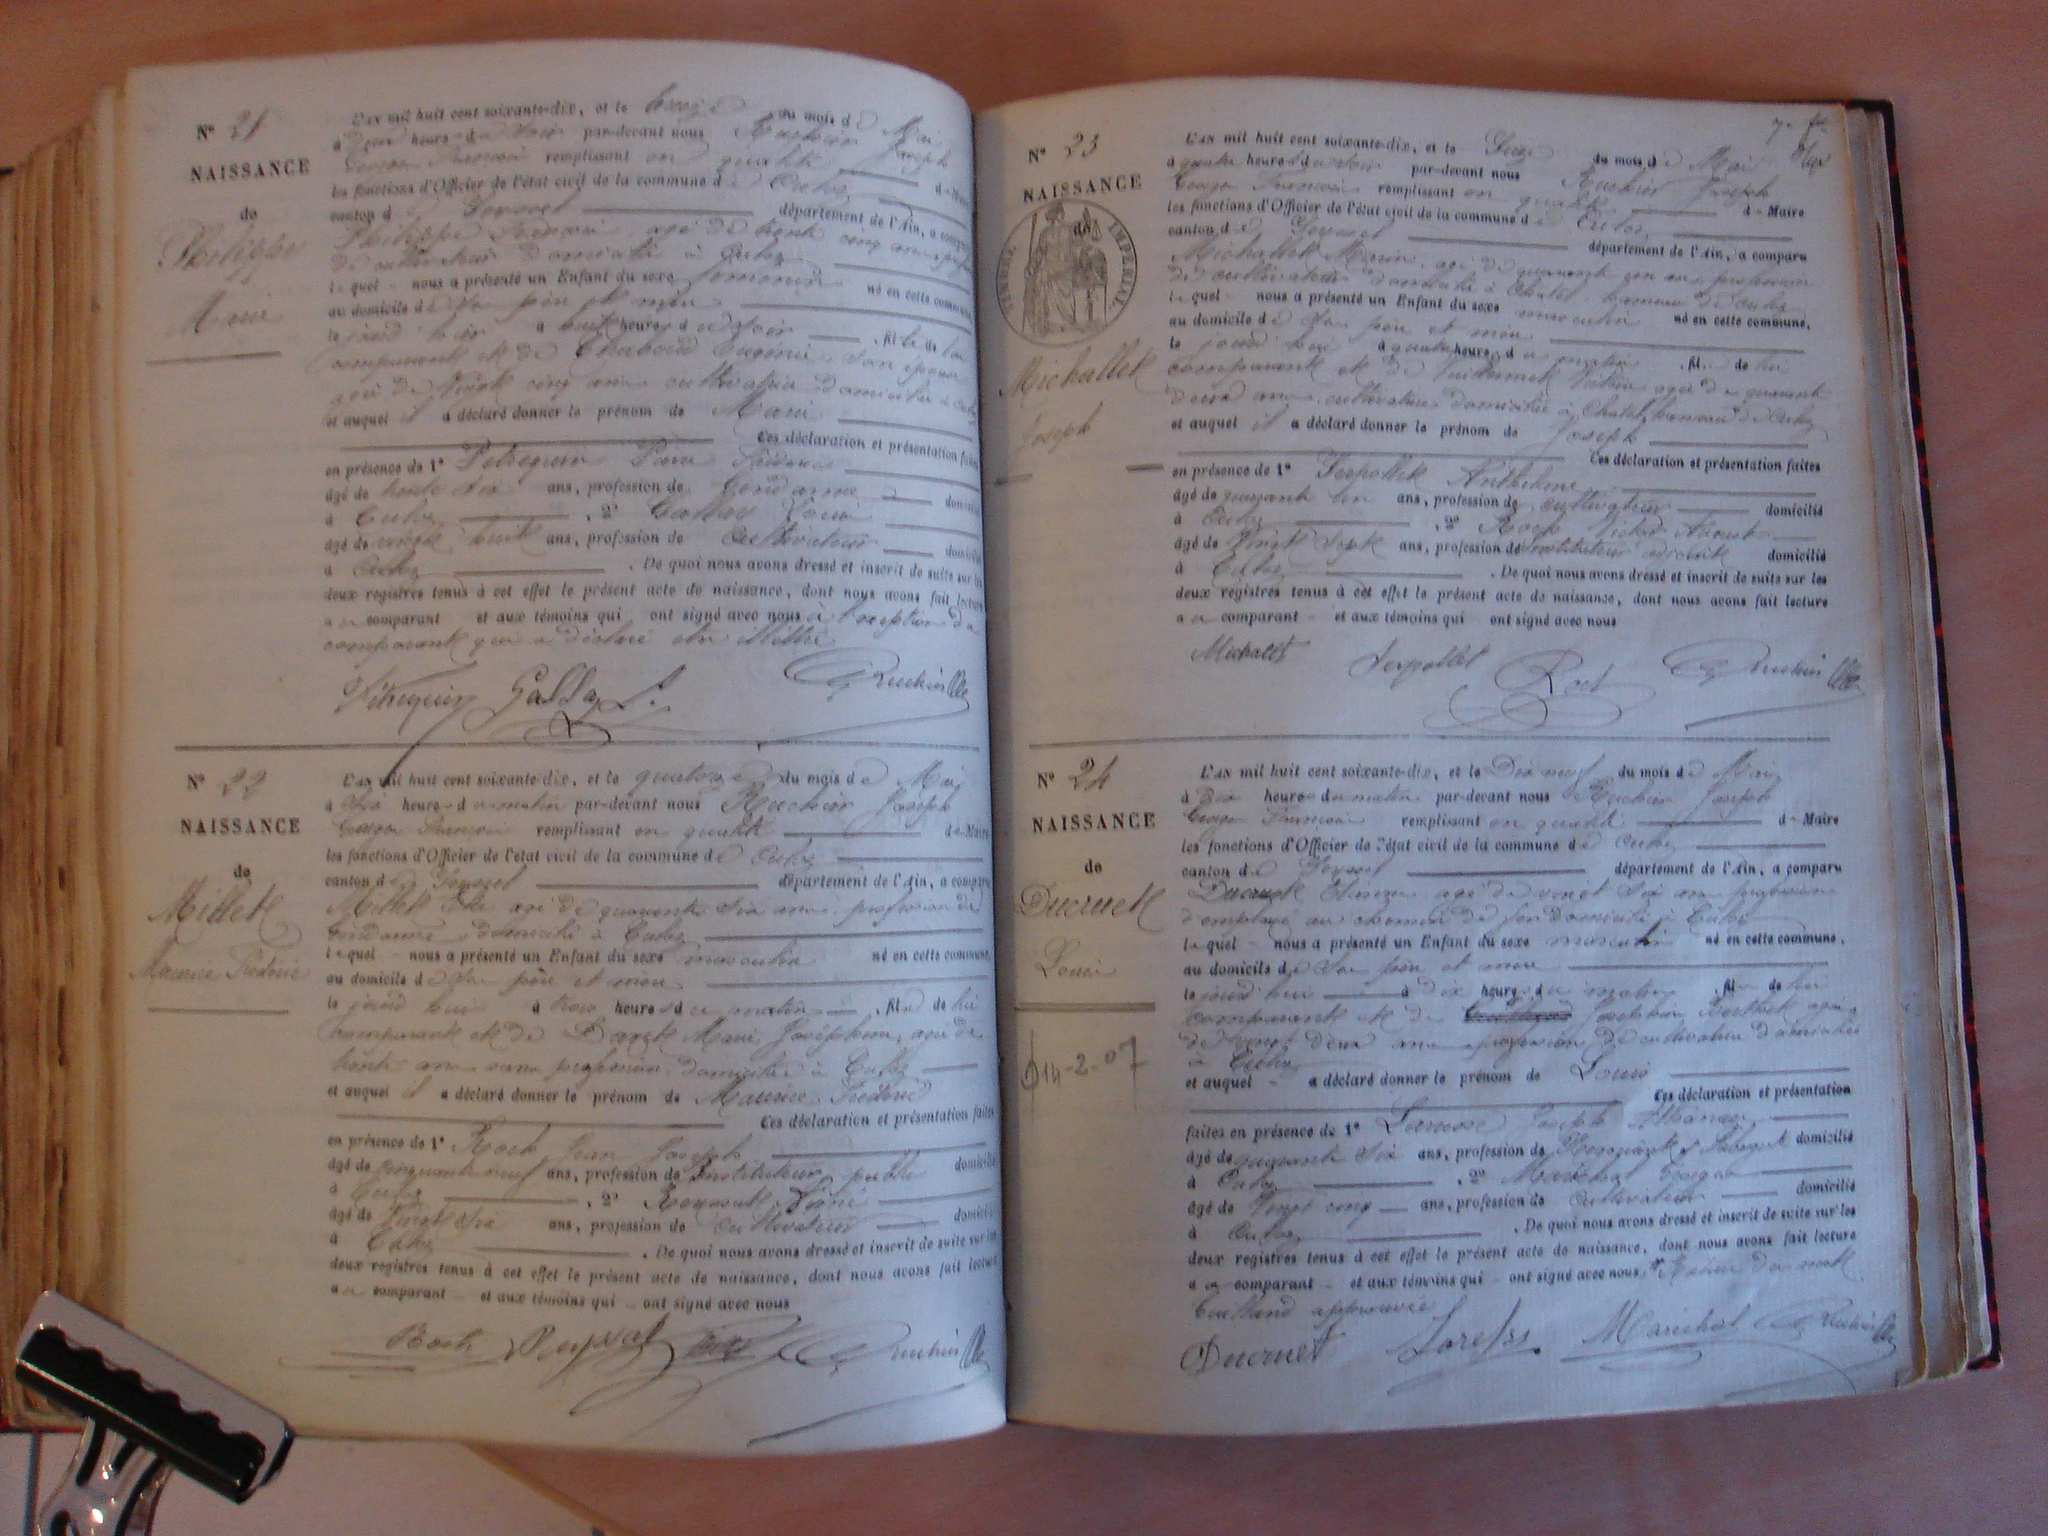 N° 21
NAISSANCE
de
Philippe
Marie
L'AN mil huit cent soixante-dix, et le treize du mois de Mai
à heures du soir par-devant nous Ruchier Joseph
François remplissant en qualité de Maire
les fonctions d'Officier de l'état civil de la commune de Culoz
canton de Seyssel département de l'Ain, a comparu
Philippe François âgé de trente cinq ans profession
de cultivateur domicilié à Culoz
lequel nous a présenté un Enfant du sexe féminin né en cette commune
au domicile de Ses père et mère
le jourd'hui à huit heures du soir fille de lui
comparant et de Chaboud Eugénie Son épouse
âgée de Vingt cinq ans cultivatrice domiciliée à Culoz
et auquel il a déclaré donner le prénom de Marie
Ces déclaration et présentation faites
en présence de 1°
âgé de trente six ans, profession de Gendarme domicilié
à Culoz , 2° Louis
âgé de vingt huit ans, profession de Cultivateur domicilié
à Culoz . De quoi nous avons dressé et inscrit de suite sur les
deux registres tenus à cet effet le présent acte de naissance, dont nous avons fait lecture
au comparant et aux témoins qui ont signé avec nous à l'exception du
comparant qui a déclaré être illétré
N° 22
NAISSANCE
de
Millet
Maurice Frédéric
L'AN mil huit cent soixante-dix, et le quatorze du mois de Mai
à Six heures du matin par-devant nous Ruchier Joseph
François remplissant en qualité de Maire
les fonctions d'Officier de l'état civil de la commune de Culoz
canton de Seyssel département de l'Ain, a comparu
Millet âgé de quarante Six ans profession de
Gendarme domicilié à Culoz
lequel nous a présenté un Enfant du sexe masculin né en cette commune,
au domicile de Ses père et mère
le jourd'hui à trois heures du matin , fils de lui
comparant et de Marie Joséphine, âgée de
trente ans sans profession domiciliée à Culoz
et auquel il a déclaré donner le prénom de Maurice Frédéric
Ces déclaration et présentation faites
en présence de 1° Roch Jean Joseph
âgé de cinquante neuf ans, profession de Instituteur public domicilié
à Culoz , 2°
âgé de Vingt Six ans, profession de Cultivateur domicilié
à Culoz . De quoi nous avons dressé et inscrit de suite sur les
deux registres tenus à cet effet le présent acte de naissance, dont nous avons fait lecture
au comparant et aux témoins qui ont signé avec nous
Roch
N° 23
NAISSANCE
de
TIMBRE IMPERIAL
Michallet
Joseph
L'AN mil huit cent soixante-dix, et le Seize du mois de Mai
à quatre heures du soir par-devant nous Ruchier Joseph
François remplissant en qualité de Maire
les fonctions d'Officier de l'état civil de la commune de Culoz
canton de Seyssel département de l'Ain, a comparu
Michallet âgé de quarante cinq ans profession
de cultivateur domicilié à Châtel hameau de Culoz
lequel nous a présenté un Enfant du sexe masculin né en cette commune,
au domicile de Ses père et mère
le jourd'hui à quatre heures du matin , fils de lui
comparant et de âgée de quarante
deux ans cultivatrice domiciliée à Châtel hameau de Culoz
et auquel il a déclaré donner le prénom de Joseph
Ces déclaration et présentation faites
en présence de 1° Serpollet Anthelme
âgé de quarante un ans, profession de cultivateur domicilié
à Culoz , 2° Roch Victor
âgé de Vingt Sept ans, profession de Instituteur adjoint domicilié
à Culoz . De quoi nous avons dressé et inscrit de suite sur les
deux registres tenus à cet effet le présent acte de naissance, dont nous avons fait lecture
au comparant et aux témoins qui ont signé avec nous
Michallet Serpollet Roch
N° 24
NAISSANCE
de
Ducruet
Louis
14-2-07
L'AN mil huit cent soixante-dix, et le Dix neuf du mois de Mai
à Dix heures du matin par-devant nous Ruchier Joseph
François remplissant en qualité de Maire
les fonctions d'Officier de l'état civil de la commune de Culoz
canton de Seyssel département de l'Ain, a comparu
Ducruet Etienne âgé de vingt Six ans profession
d'employé au chemin de fer Domicilié à Culoz
lequel nous a présenté un Enfant du sexe masculin né en cette commune,
au domicile de Ses père et mère
le jourd'hui à dix heures du matin , fils de lui
comparant et de Berthet âgée
de vingt Deux ans profession de cultivatrice domiciliée
à Culoz
et auquel a déclaré donner le prénom de Louis
Ces déclaration et présentation
faites en présence de 1° Joseph
âgé de quarante Six ans, profession de domicilié
à Culoz , 2° Maréchal
âgé de Vingt cinq ans, profession de Cultivateur domicilié
à Culoz . De quoi nous avons dressé et inscrit de suite sur les
deux registres tenus à cet effet le présent acte de naissance, dont nous avons fait lecture
au comparant et aux témoins qui ont signé avec nous. Rature du mot
approuvée
Ducruet Maréchal